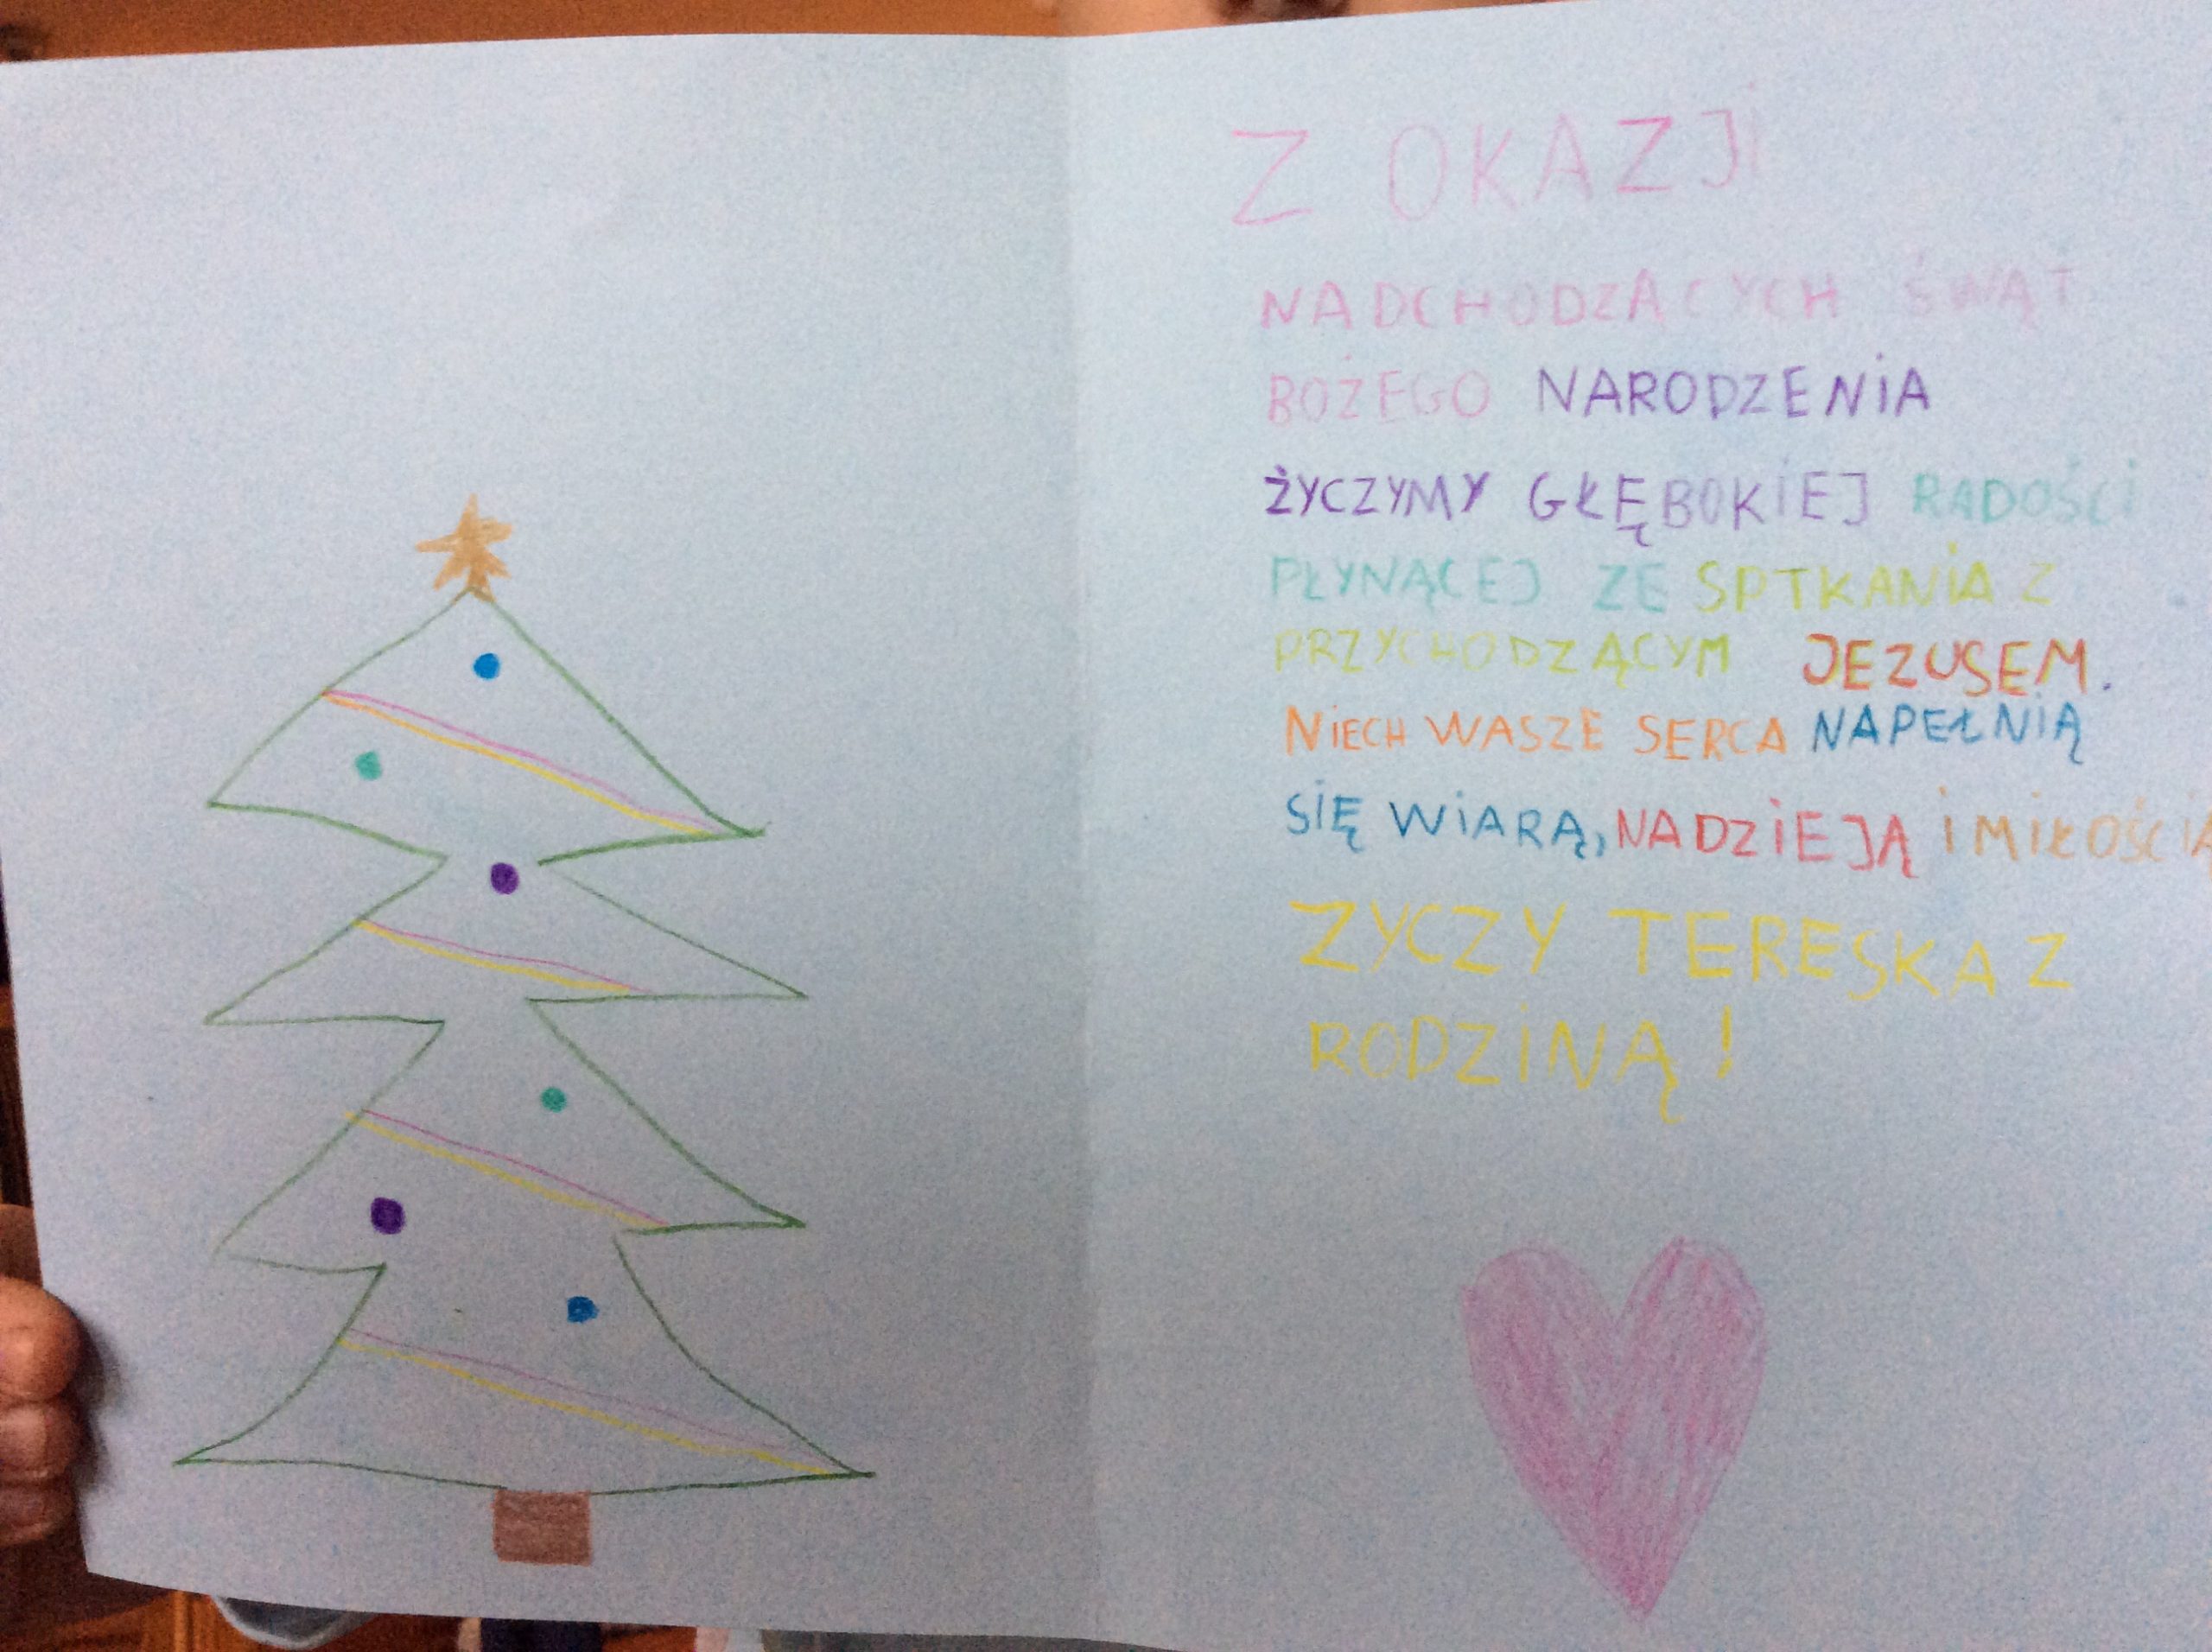 Z OKAZJi
NADCHODZĄCYCH ŚWĄT
BOŻEGO NARODZENiA
ŻYCZYMY GŁĘBOKiEJ RADOŚCi
PŁYNĄCEJ ZE SPTKANiA Z
PRZYCHODZĄCYM JEZUSEM.
NiECH WASZE SERCA NAPEŁNiĄ
SiĘ WiARĄ, NADZiEJĄ i MiŁOŚCiĄ
ZYCZY TERESKA Z
RODZiNĄ!